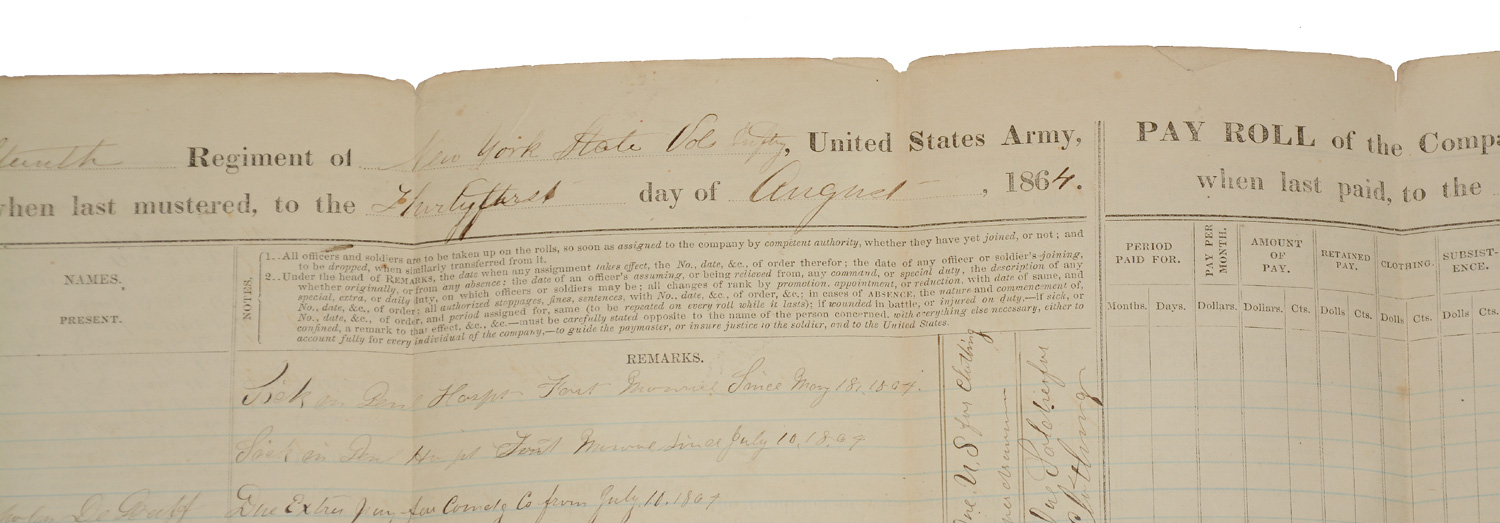 Regiment of New York State Vols Infty, United States Army,
when last mustered, to the Thirtyfirst day of August, 1864.
NAMES.
PRESENT.
NOTES.
1..All officers and soldiers are to be taken up on the rolls, so soon as assigned to the company by competent authority, whether they have yet joined, or not; and
to be dropped, when similarly transferred from it.
2..Under the head of REMARKS, the date when any assignment takes effect, the No., date, &c., of order therefor; the date of any officer or soldier's joining,
whether originally, or from any absence; the date of an officer's assuming, or being relieved from, any command, or special duty, the description of any
special, extra, or daily duty, on which officers or soldiers may be; all changes of rank by promotion, appointment, or reduction, with date of same, and
No., date, &c., of order; all authorized stoppages, fines, sentences, with No., date, &c., of order, &c.; in cases of ABSENCE, the nature and commencement of,
No., date, &c., of order, and period assigned for, same (to be repeated on every roll while it lasts); if wounded in battle, or injured on duty,—if sick, or
confined, a remark to that effect, &c., &c.—must be carefully stated opposite to the name of the person concerned, with everything else necessary, either to
account fully for every individual of the company,—to guide the paymaster, or insure justice to the soldier, and to the United States.
REMARKS.
Sick in Genl Hospt Fort Monroe Since May 18, 1864.
Sick in Genl Hospt Fort Monroe Since July 10, 1864
De Graff Due Extra pay for Comdg Co from July 10. 1864
U S for Clothing
overdrawn
Soldier for
Clothing
PAY ROLL of the Compa
when last paid, to the
PERIOD PAID FOR.
Months. Days.
PAY PER MONTH.
Dollars.
AMOUNT OF PAY.
Dollars. Cts.
RETAINED PAY.
Dolls Cts.
CLOTHING.
Dolls Cts.
SUBSIST-ENCE.
Dolls Cts.